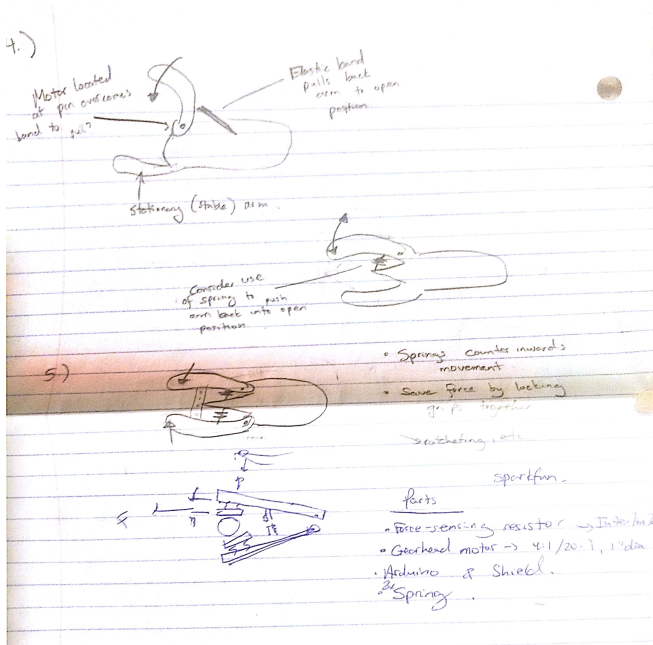 4.)
Motor located
at pin overcomes
band to
Elastic band
pulls back
arm to open
position
stationary (stable) arm.
Consider use
of spring to push
arm back into open
position
5)
• Springs counter inwards
movement
• Save force by locking
grips together
ratcheting, etc
sparkfun.
Parts
• Force-sensing resistor →
• Gearhead motor → 4:1/20:1, 1" dia
• Arduino & Shield.
• 2x Spring.